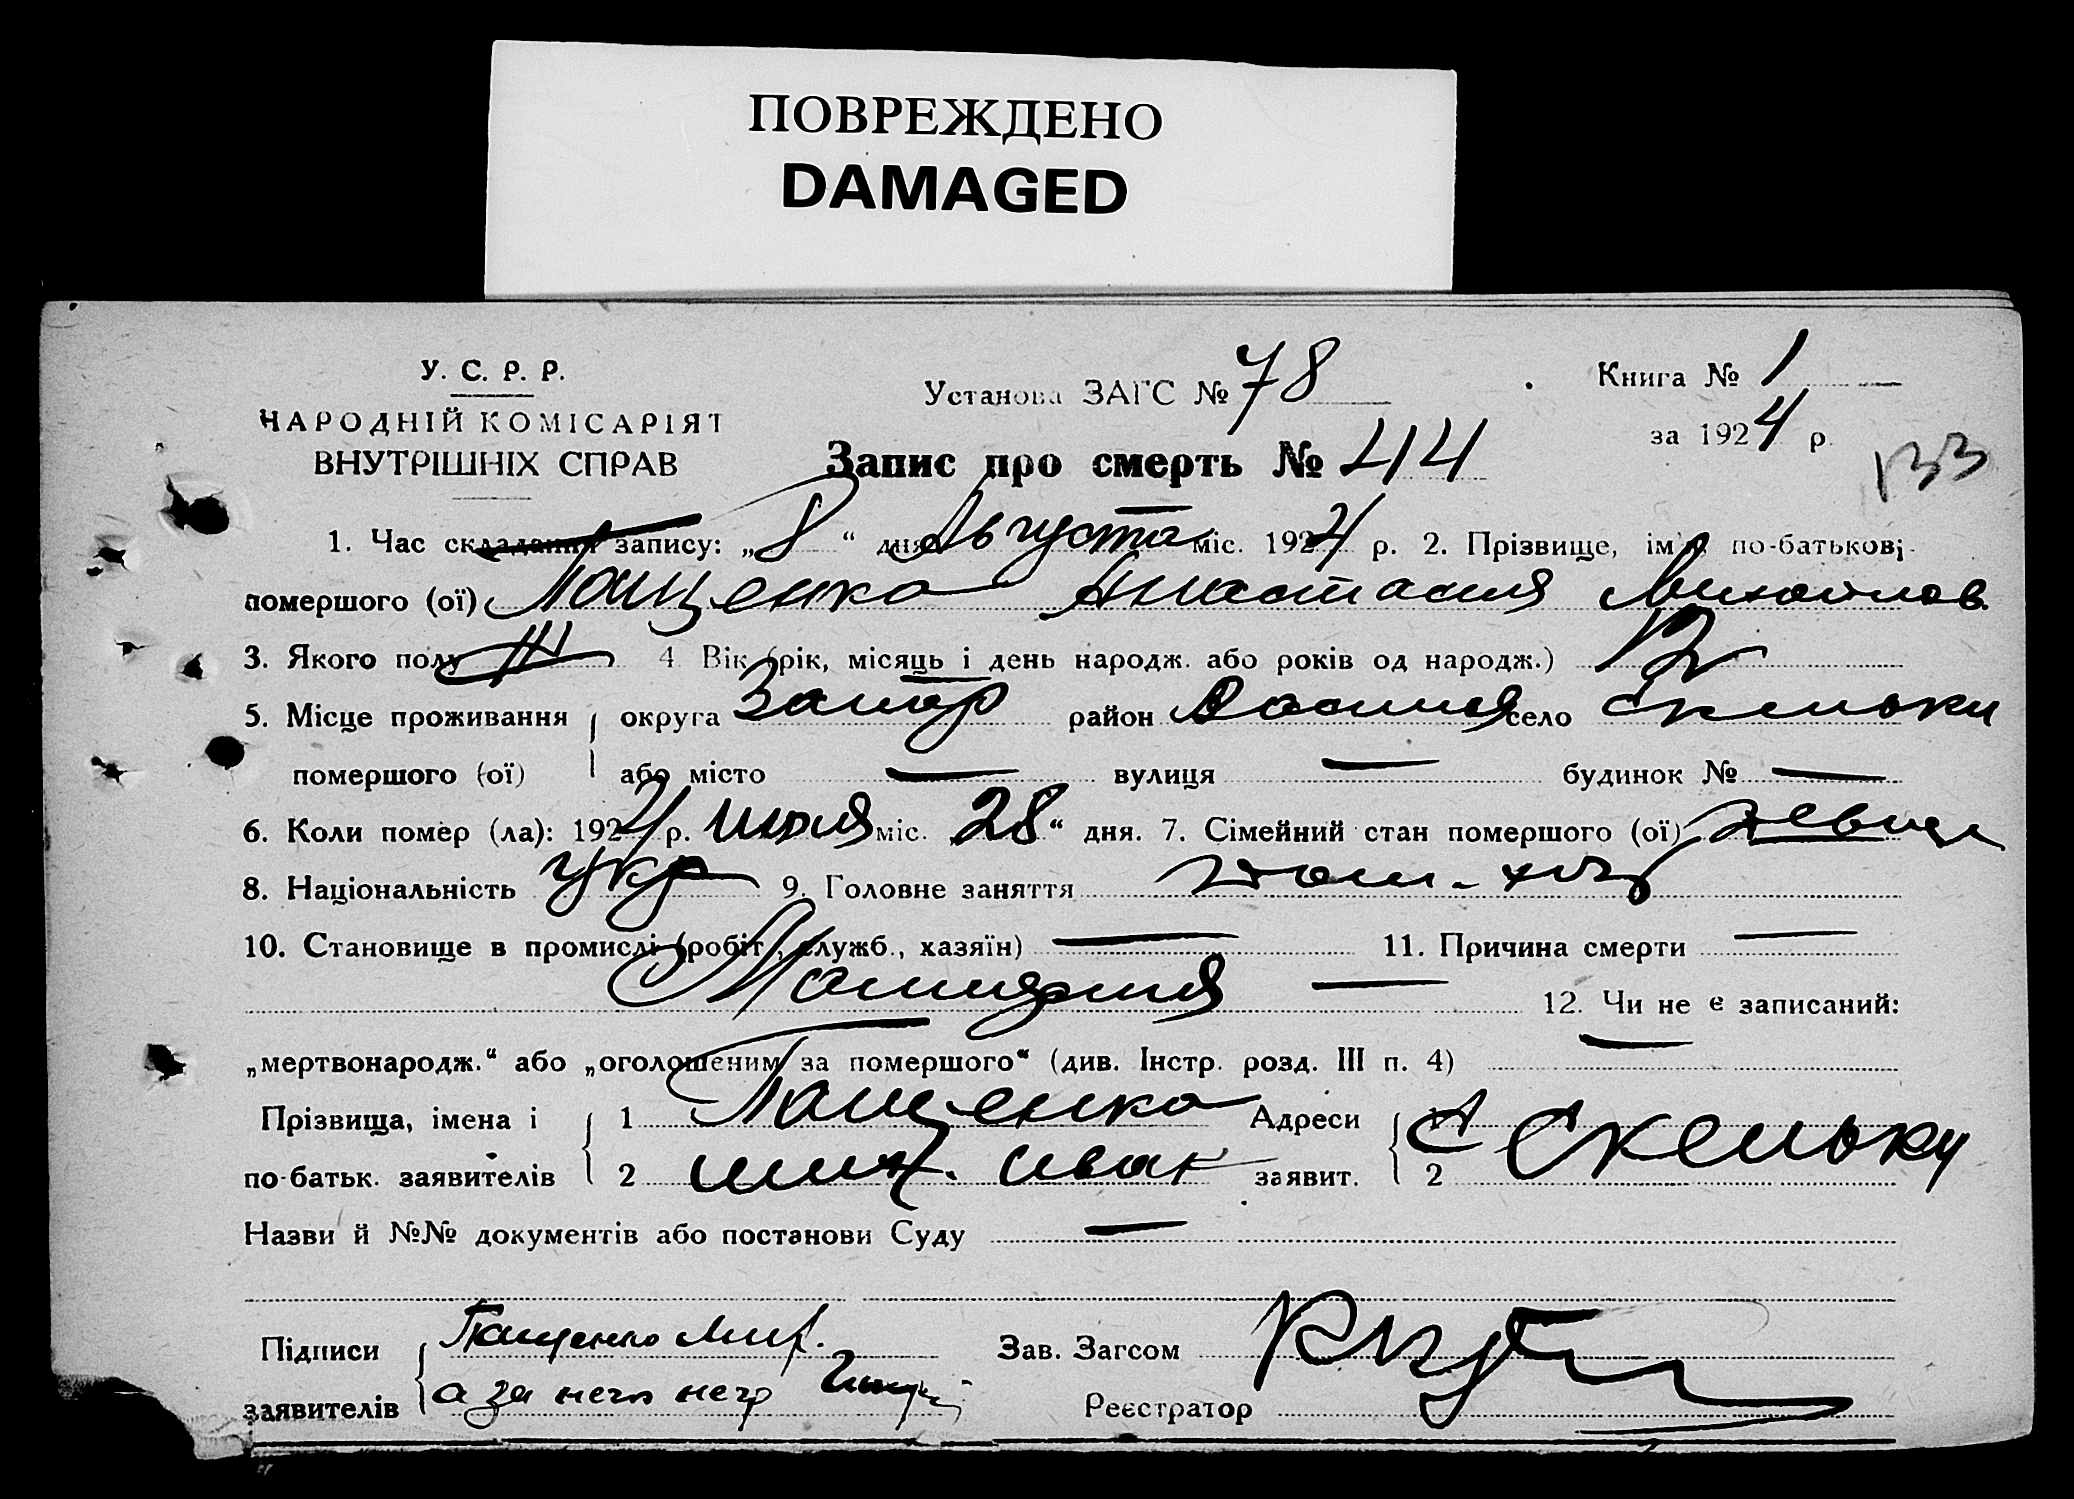 ПОВРЕЖДЕНО
DAMAGED
У. С. Р. Р.
НАРОДНІЙ КОМІСАРІЯТ
ВНУТРІШНІХ СПРАВ
Установа ЗАГС № 78
Книга № 1
за 1924 р.
Запис про смерть № 44
133
1. Час складання запису: „8“ дня Августа міс. 1924 р. 2. Прізвище, ім'я, по-батькові
помершого (ої) Пащенко Анастасия Михайлов.
3. Якого полу Ж 4 Вік (рік, місяць і день народж. або років од народж.) 12
5. Місце проживання округа Запор район село Скельки
помершого (ої) або місто — вулиця — будинок № —
6. Коли помер (ла): 1924 р. июля міс. 28“ дня. 7. Сімейний стан помершого (ої) девица
8. Національність укр 9. Головне заняття дом. хоз
10. Становище в промислі (робіт., служб., хазяїн) — 11. Причина смерти —
Малярия — 12. Чи не є записаний:
„мертвонародж.“ або „оголошеним за помершого“ (див. Інстр. розд. III п. 4) —
Прізвища, імена і 1 Пащенко Адреси 1 с Скельку
по-батьк. заявителів 2 мих. Иван заявит. 2
Назви й №№ документів або постанови Суду —
Підписи Пащенко Мих. Зав. Загсом
заявителів а за него негр Реєстратор